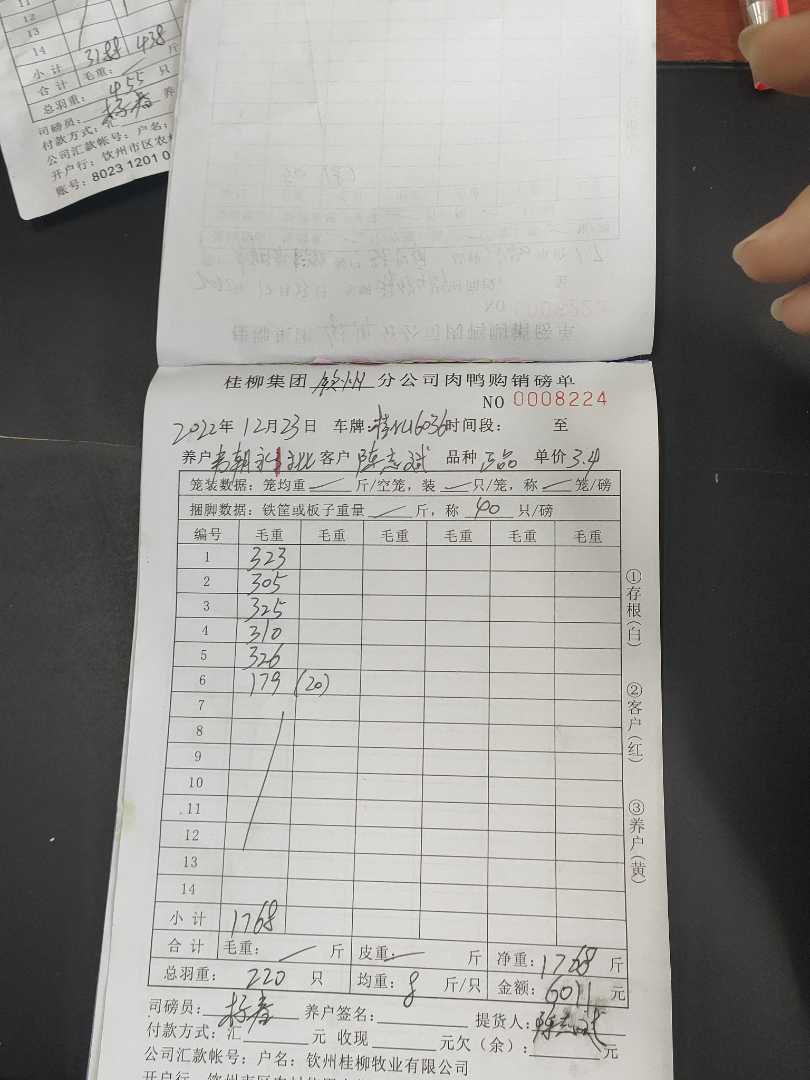 11
12
13
14
小 计 3188 438
合 计 毛重： 斤
总羽重： 455 只
司磅员： 杨春 养
付款方式：汇
公司汇款帐号：户名：
开户行：钦州市区农
账号：8023 1201 0
桂柳集团 钦州 分公司肉鸭购销磅单
NO 0008224
2022年 12月23日 车牌： 时间段： 至
养户 客户 陈志斌 品种 正品 单价 3.4
笼装数据：笼均重 斤/空笼，装 只/笼，称 笼/磅
捆脚数据：铁筐或板子重量 斤，称 40 只/磅
编号 毛重 毛重 毛重 毛重 毛重 毛重
1 323
2 305
3 325
4 310
5 326
6 179 (20)
7
8
9
10
11
12
13
14
小 计 1768
合 计 毛重： 斤 皮重： 斤 净重：1768 斤
总羽重： 220 只 均重：8 斤/只 金额：6011 元
司磅员： 杨春 养户签名： 提货人：陈志斌
付款方式：汇 元 收现 元欠（余）： 元
公司汇款帐号：户名：钦州桂柳牧业有限公司
①存根（白）
②客户（红）
③养户（黄）